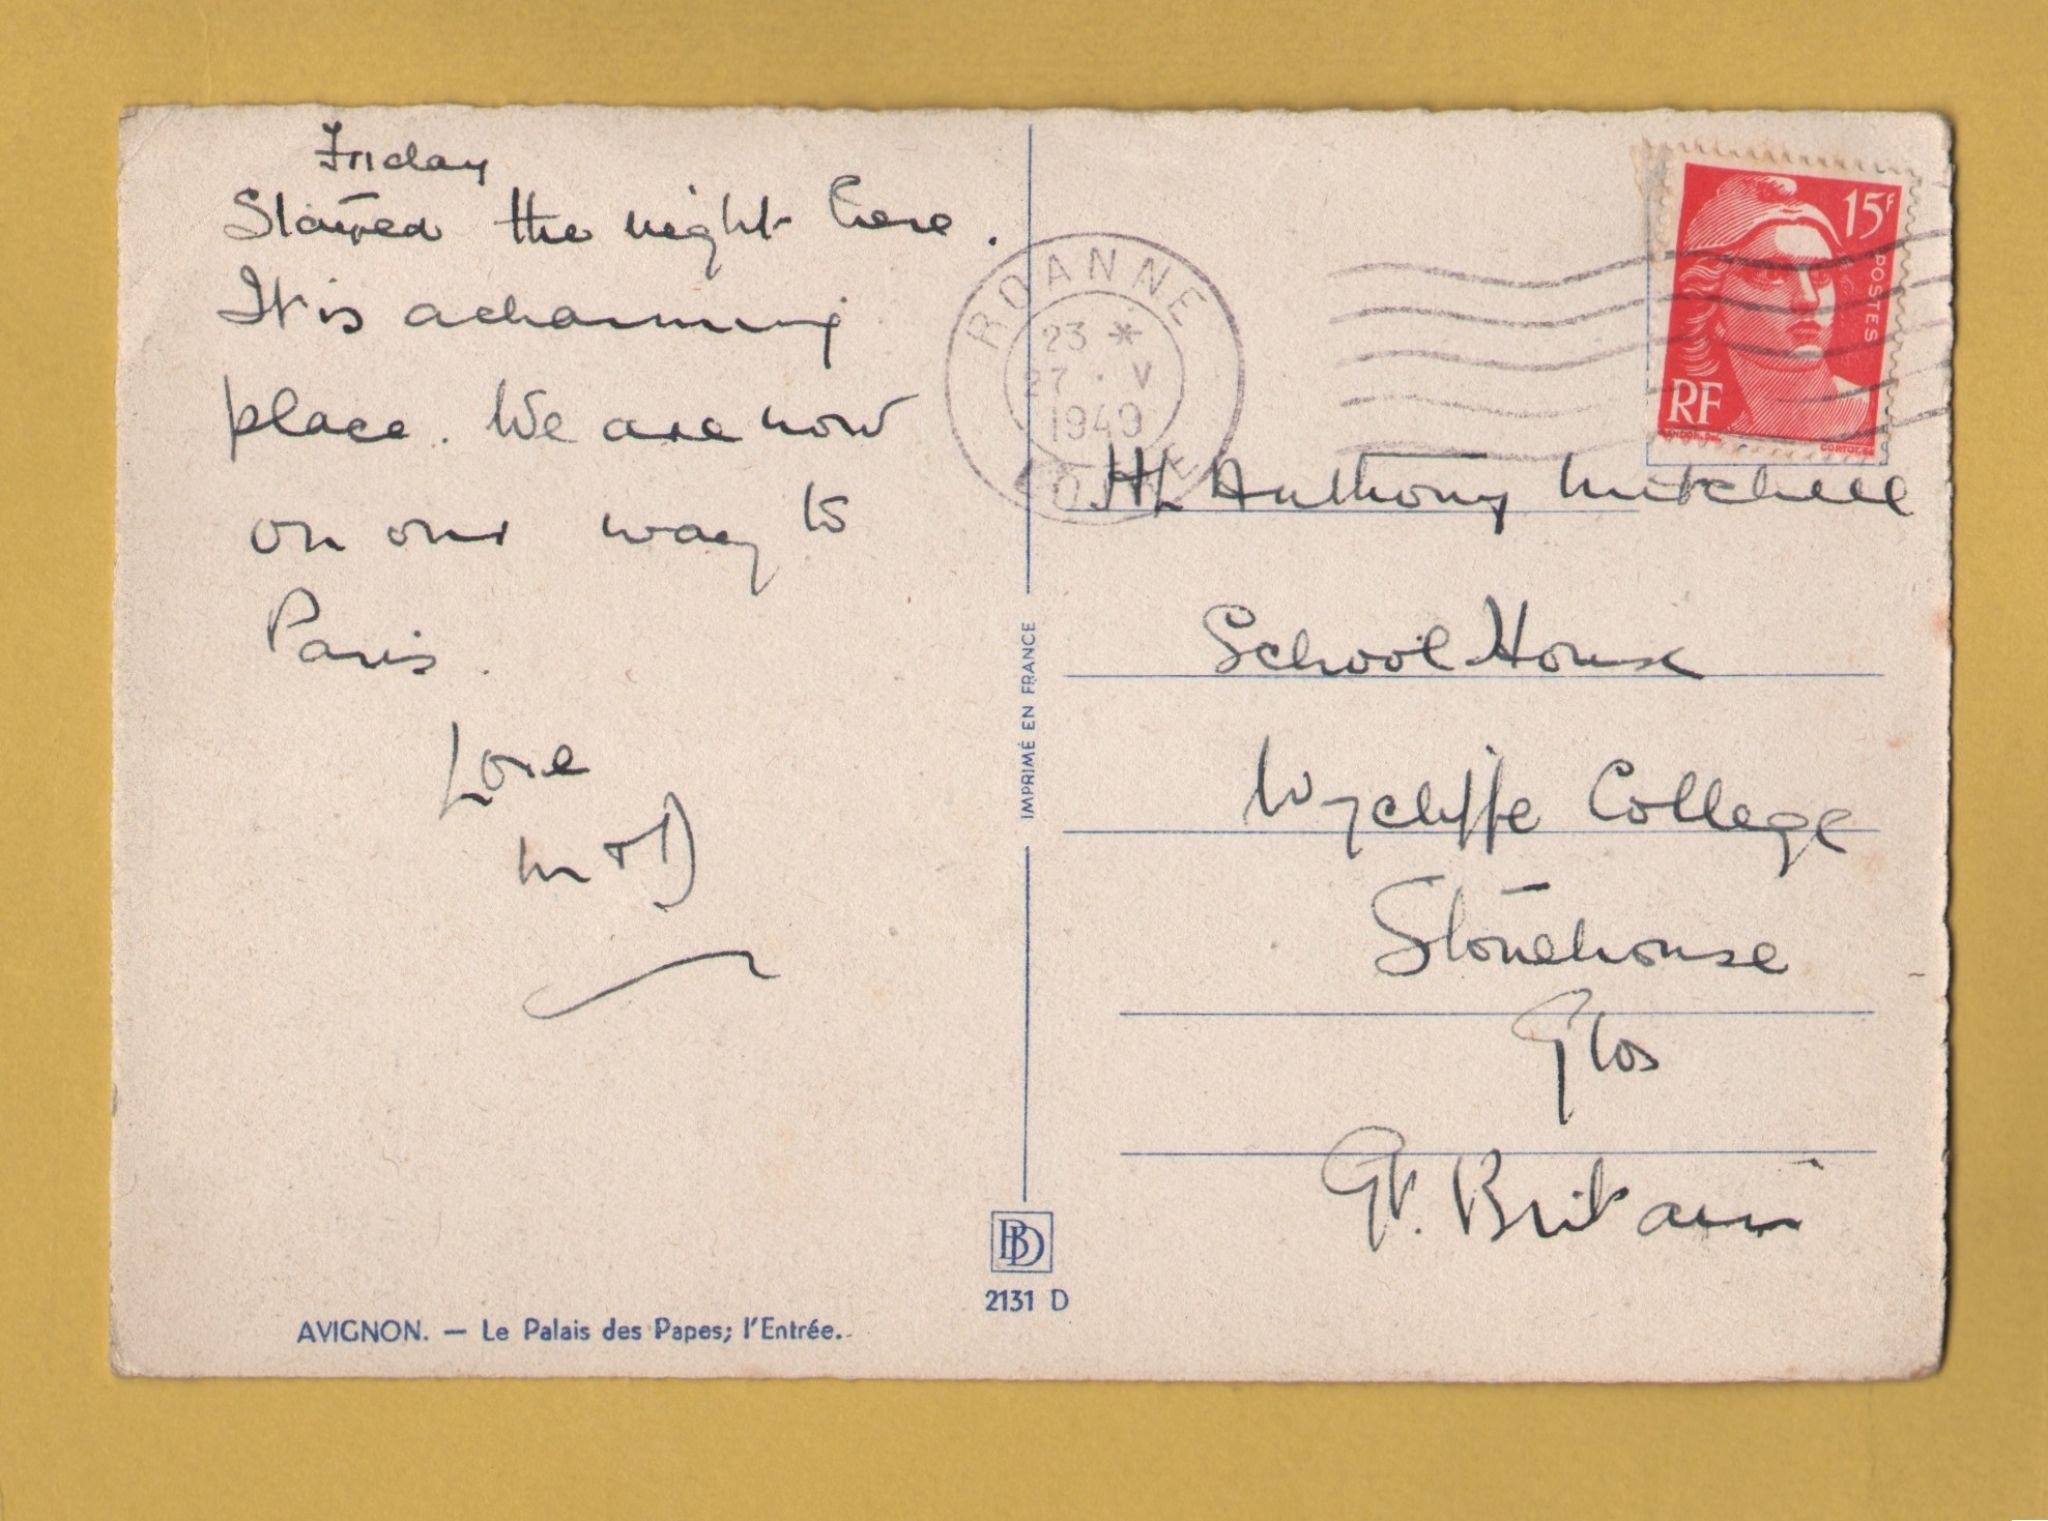 Friday
Stayed the night here.
It is a charming
place. We are now
on our way to
Paris.
Love
M + D
AVIGNON. — Le Palais des Papes; l'Entrée.
IMPRIMÉ EN FRANCE
BD
2131 D
ROANNE
23 *
27 · V
1949
LOIRE
15F
POSTES
RF
Anthony Mitchell
School House
Wycliffe College
Stonehouse
Glos
Gt. Britain